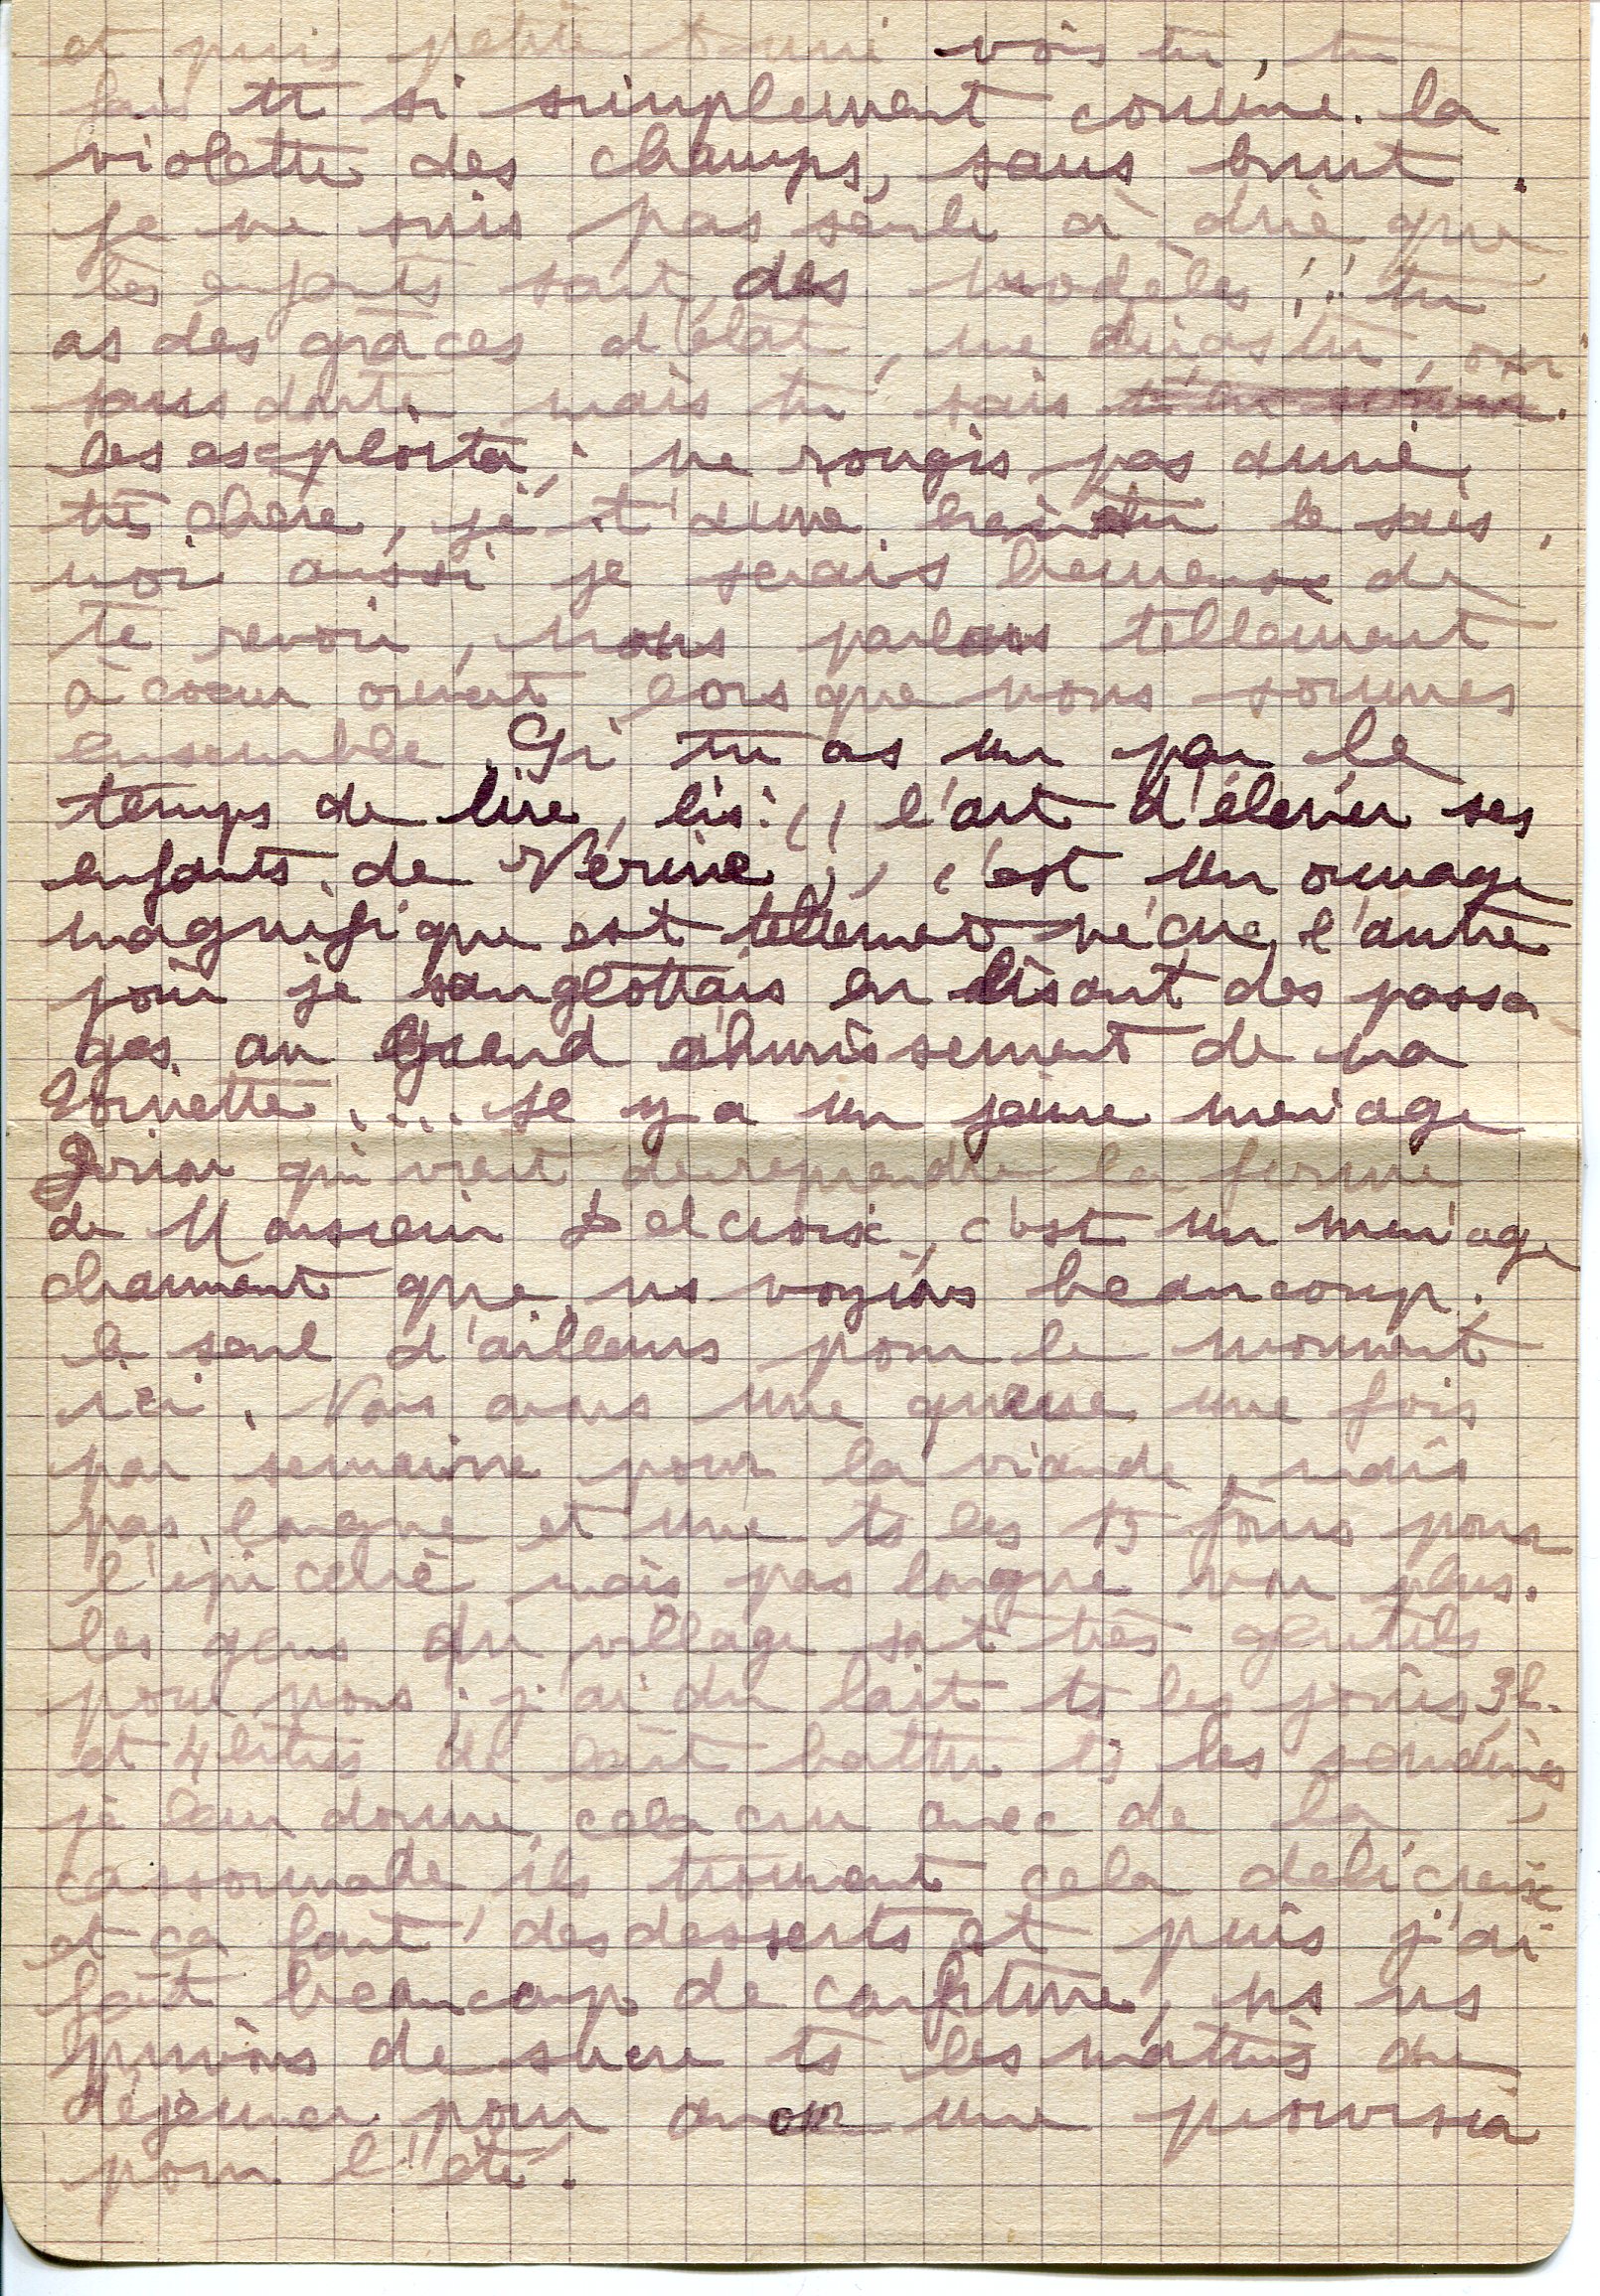 et puis petite amie vois tu, tu
fais tt si simplement comme la
violette des champs, sans bruit.
je ne suis pas seule à dire que
tes enfants sont des modèles !! tu
as des grâces d'état, me diras tu, oui
sans doute mais tu sais
les exploiter; ne rougis pas amie
très chère, je t'aime bien tu le sais,
moi aussi je serais heureuse de
te revoir, nous parlons tellement
à coeur ouvert lorsque nous sommes
ensemble. Si tu as un peu le
temps de lire, lis: (( l'art d'élever ses
enfants de Vérine )), c'est un ouvrage
magnifique est tellement vécue, l'autre
jour je sanglottais en lisant des passa
ges au grand ahurissement de ma
.... Il y a un jeune menage
qui vient de reprendre la ferme
de Monsieur Delcroix, c'est un menage
charmant que ns voyions beaucoup.
le seul d'ailleurs pour le moment
ici. Nous avons une queue une fois
par semaine pour la viande, mais
pas longue et une ts les 15 jours pour
l'épicerie mais pas longue non plus.
les gens du village sont très gentils
pour nous; j'ai du lait ts les jours 3l.
et 4 litres de lait battu ts les semaines
je leur donne cela cru avec de la
cassonnade, ils trouvent cela délicieux
et ca font des desserts et puis j'ai
fait beaucoup de confiture, ns ns
privons de sucre ts les mattins au
déjeuner pour avoir une provision
pour l'été.